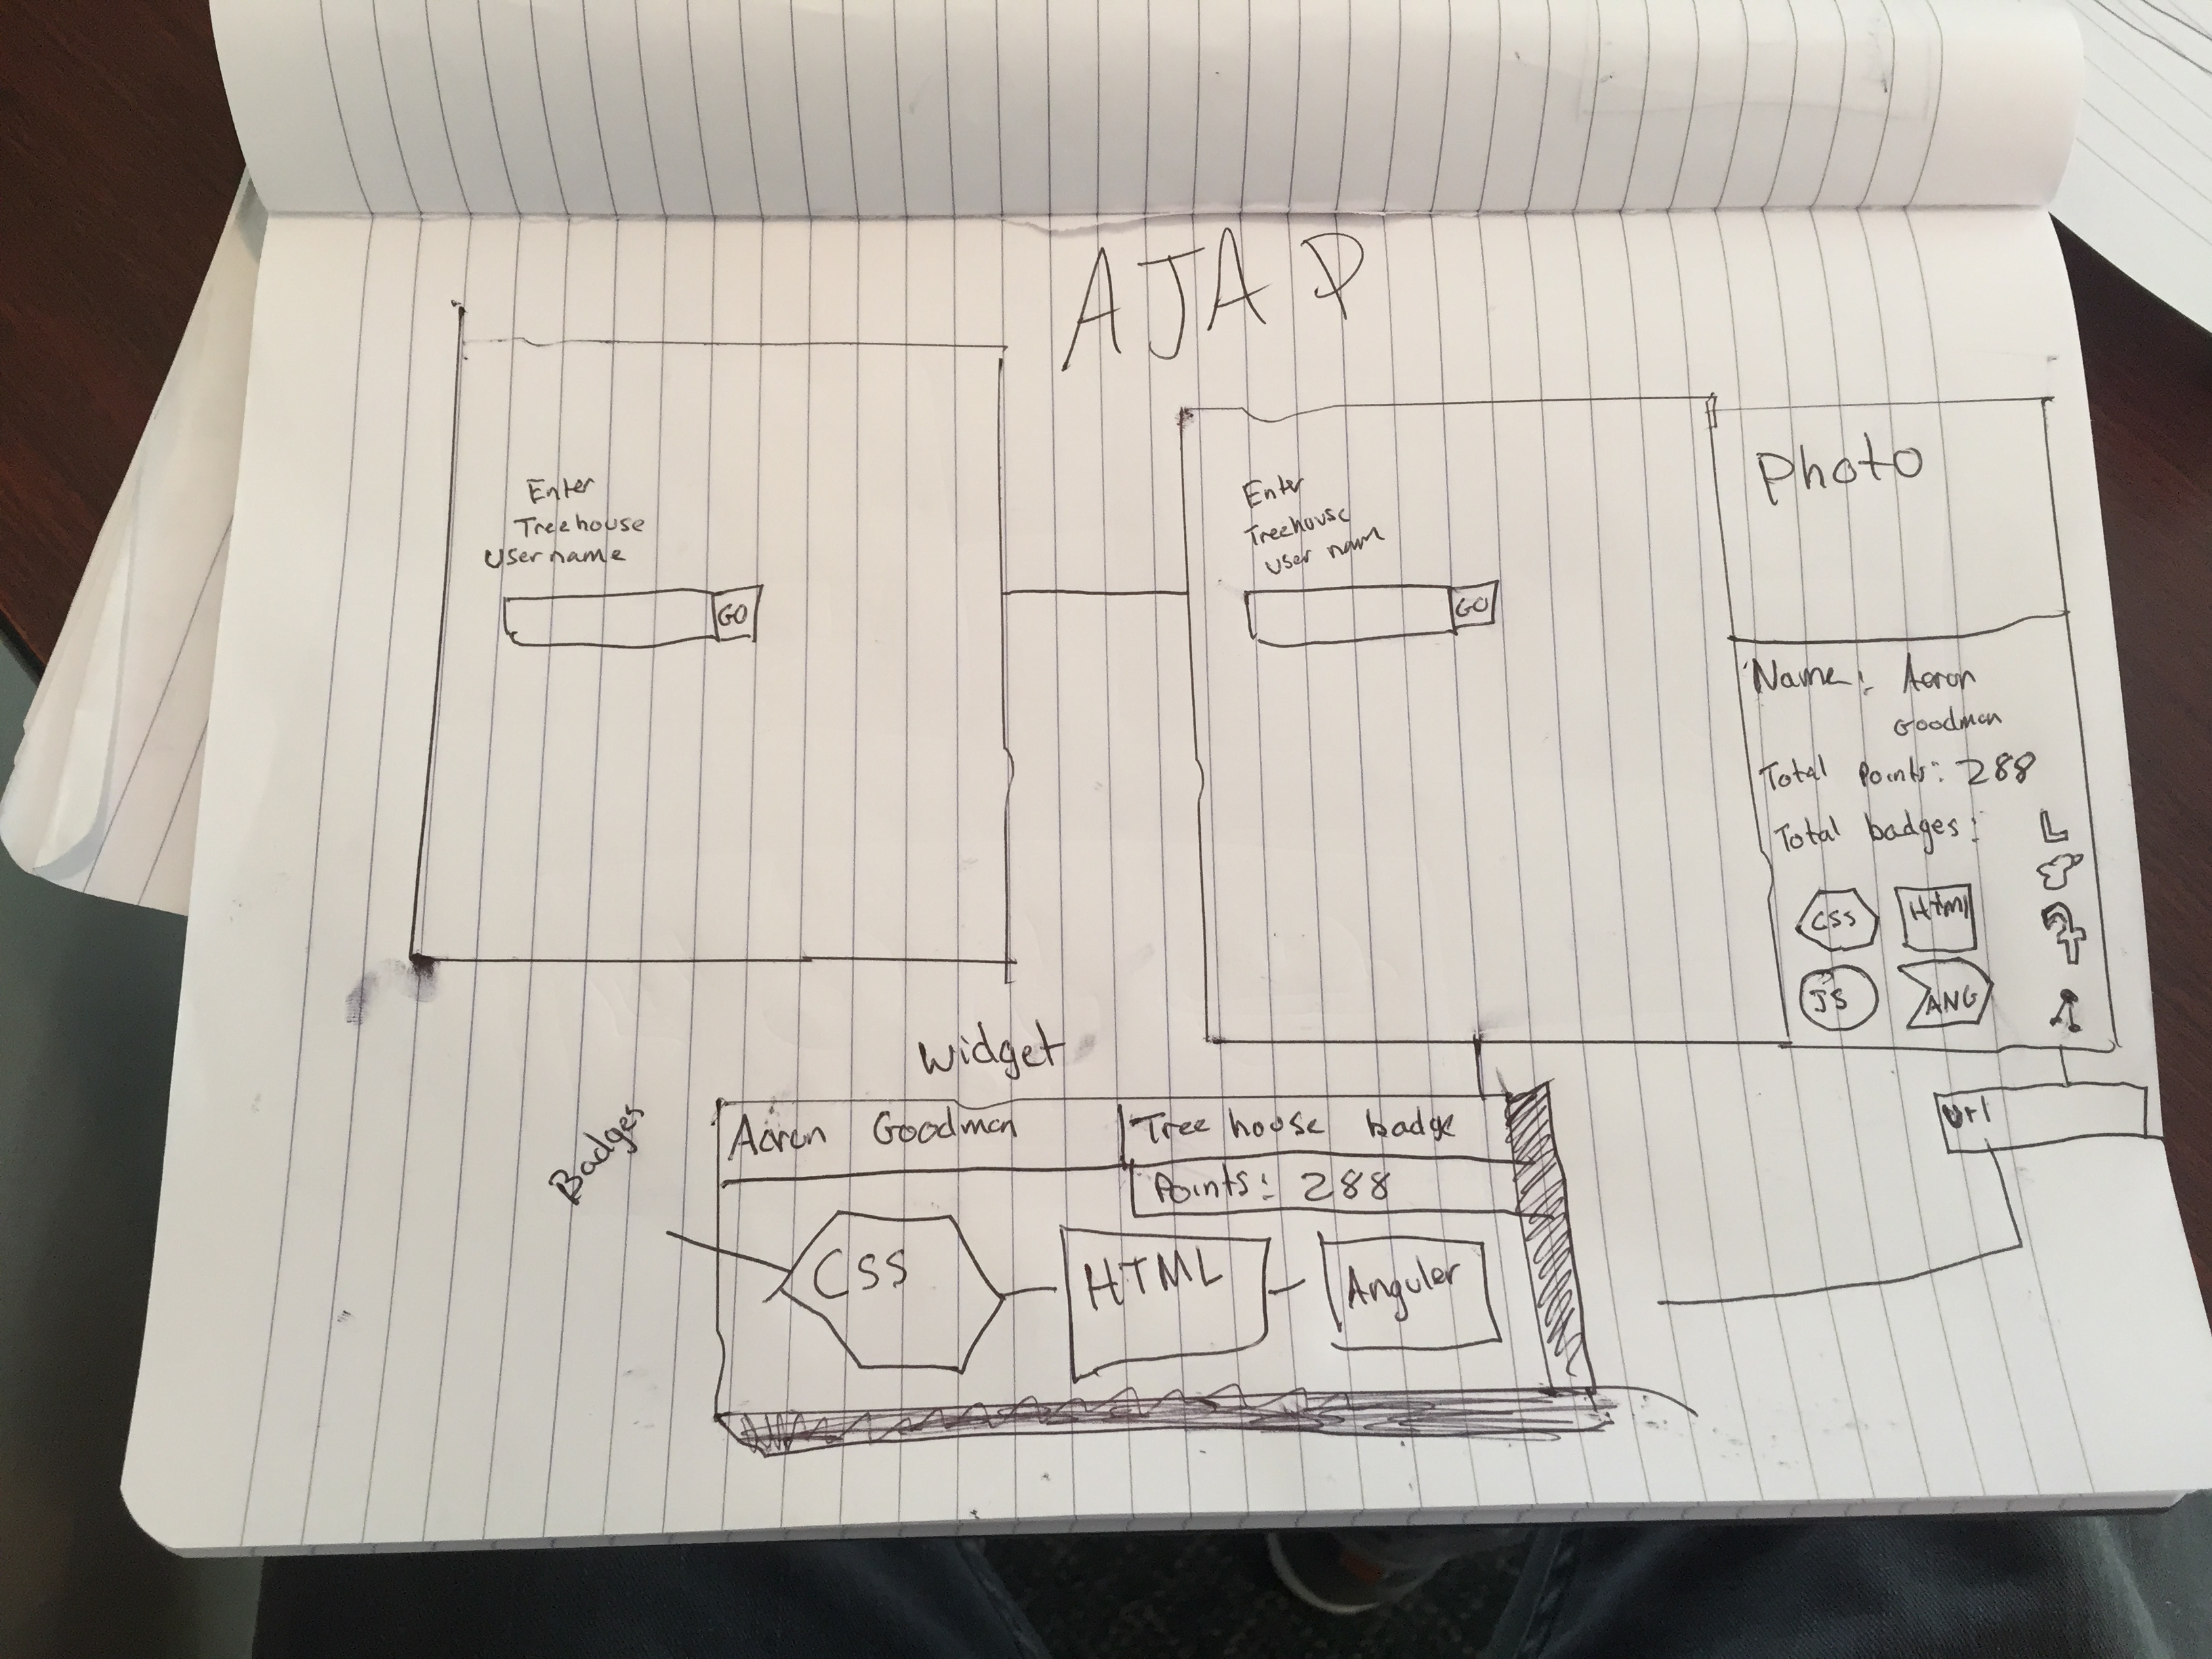 AJAP
Enter
Treehouse
Username
GO
Enter
Treehouse
User nam
GO
Photo
Name: Aaron
Goodman
Total Points: 288
Total badges:
CSS
Html
JS
ANG
url
Widget
Badges
Aaron Goodman
Tree house badge
Points: 288
CSS
HTML
Anguler